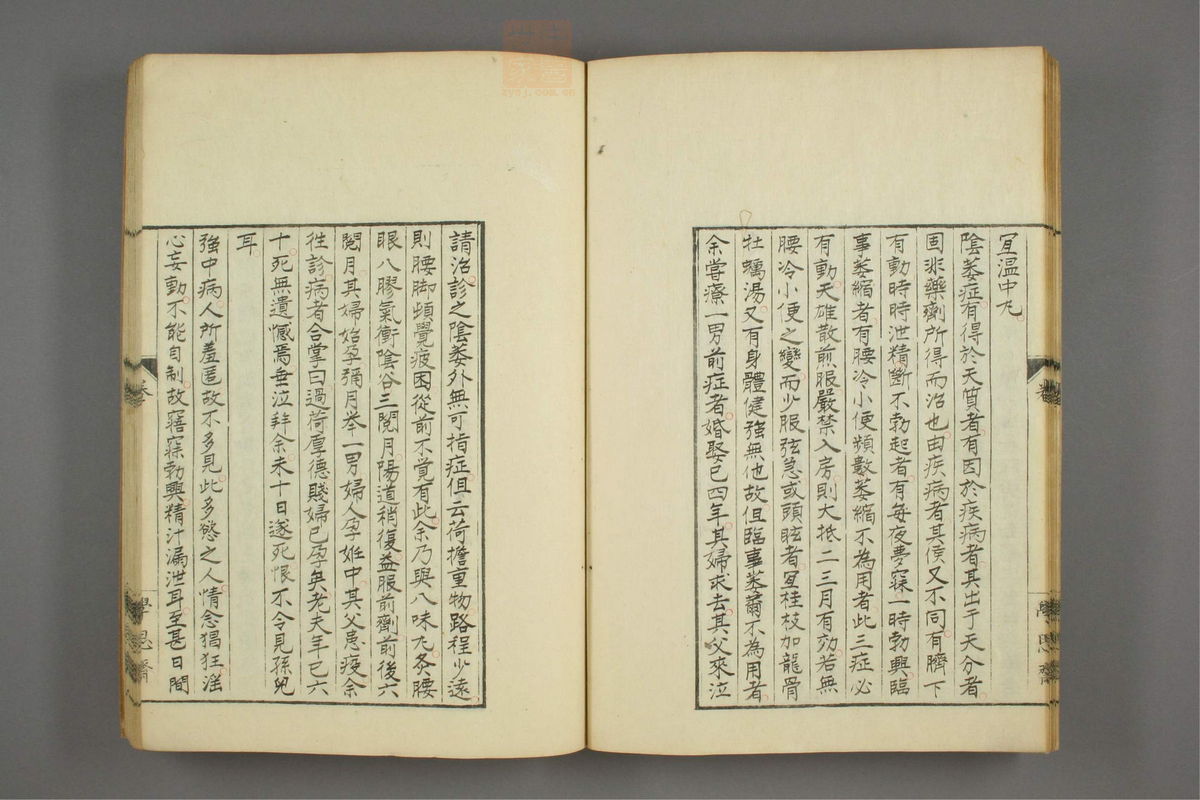 宜溫中丸
陰萎症有得於天質者有因於疾病者其出于天分者
固非藥劑所得而治也由疾病者其侯又不同有臍下
有動時時泄精斷不勃起者有每夜夢寐一時勃興臨
事萎縮者有腰冷小便頻數萎縮不為用者此三症必
有動天雄散煎服嚴禁入房則大抵二三月有効若無
腰冷小便之變而少服弦急或頭眩者宜桂枝加龍骨
牡蠣湯又有身體健強無他故但臨事萎薾不為用者
余嘗療一男前症者婚娶已四年其婦求去其父來泣
請治診之陰萎外無可指症但云荷擔重物路程少遠
則腰脚頓覺疲困從前不覚有此余乃與八味丸灸腰
眼八膠氣衝陰谷三閱月陽道稍復益服前劑前後六
閱月其婦始孕彌月举一男婦人孕妊中其父患疫余
徃診病者合掌曰過荷厚德賤婦已孕矣老夫年已六
十死無遺憾焉垂泣拜余未十日遂死恨不令見孫兒
耳
強中病人所羞匿故不多見此多慾之人情念猖狂淫
心妄動不能自制故寤寐勃興精汁漏泄耳至甚日間
卷
學思齋
八
卷
學思齋